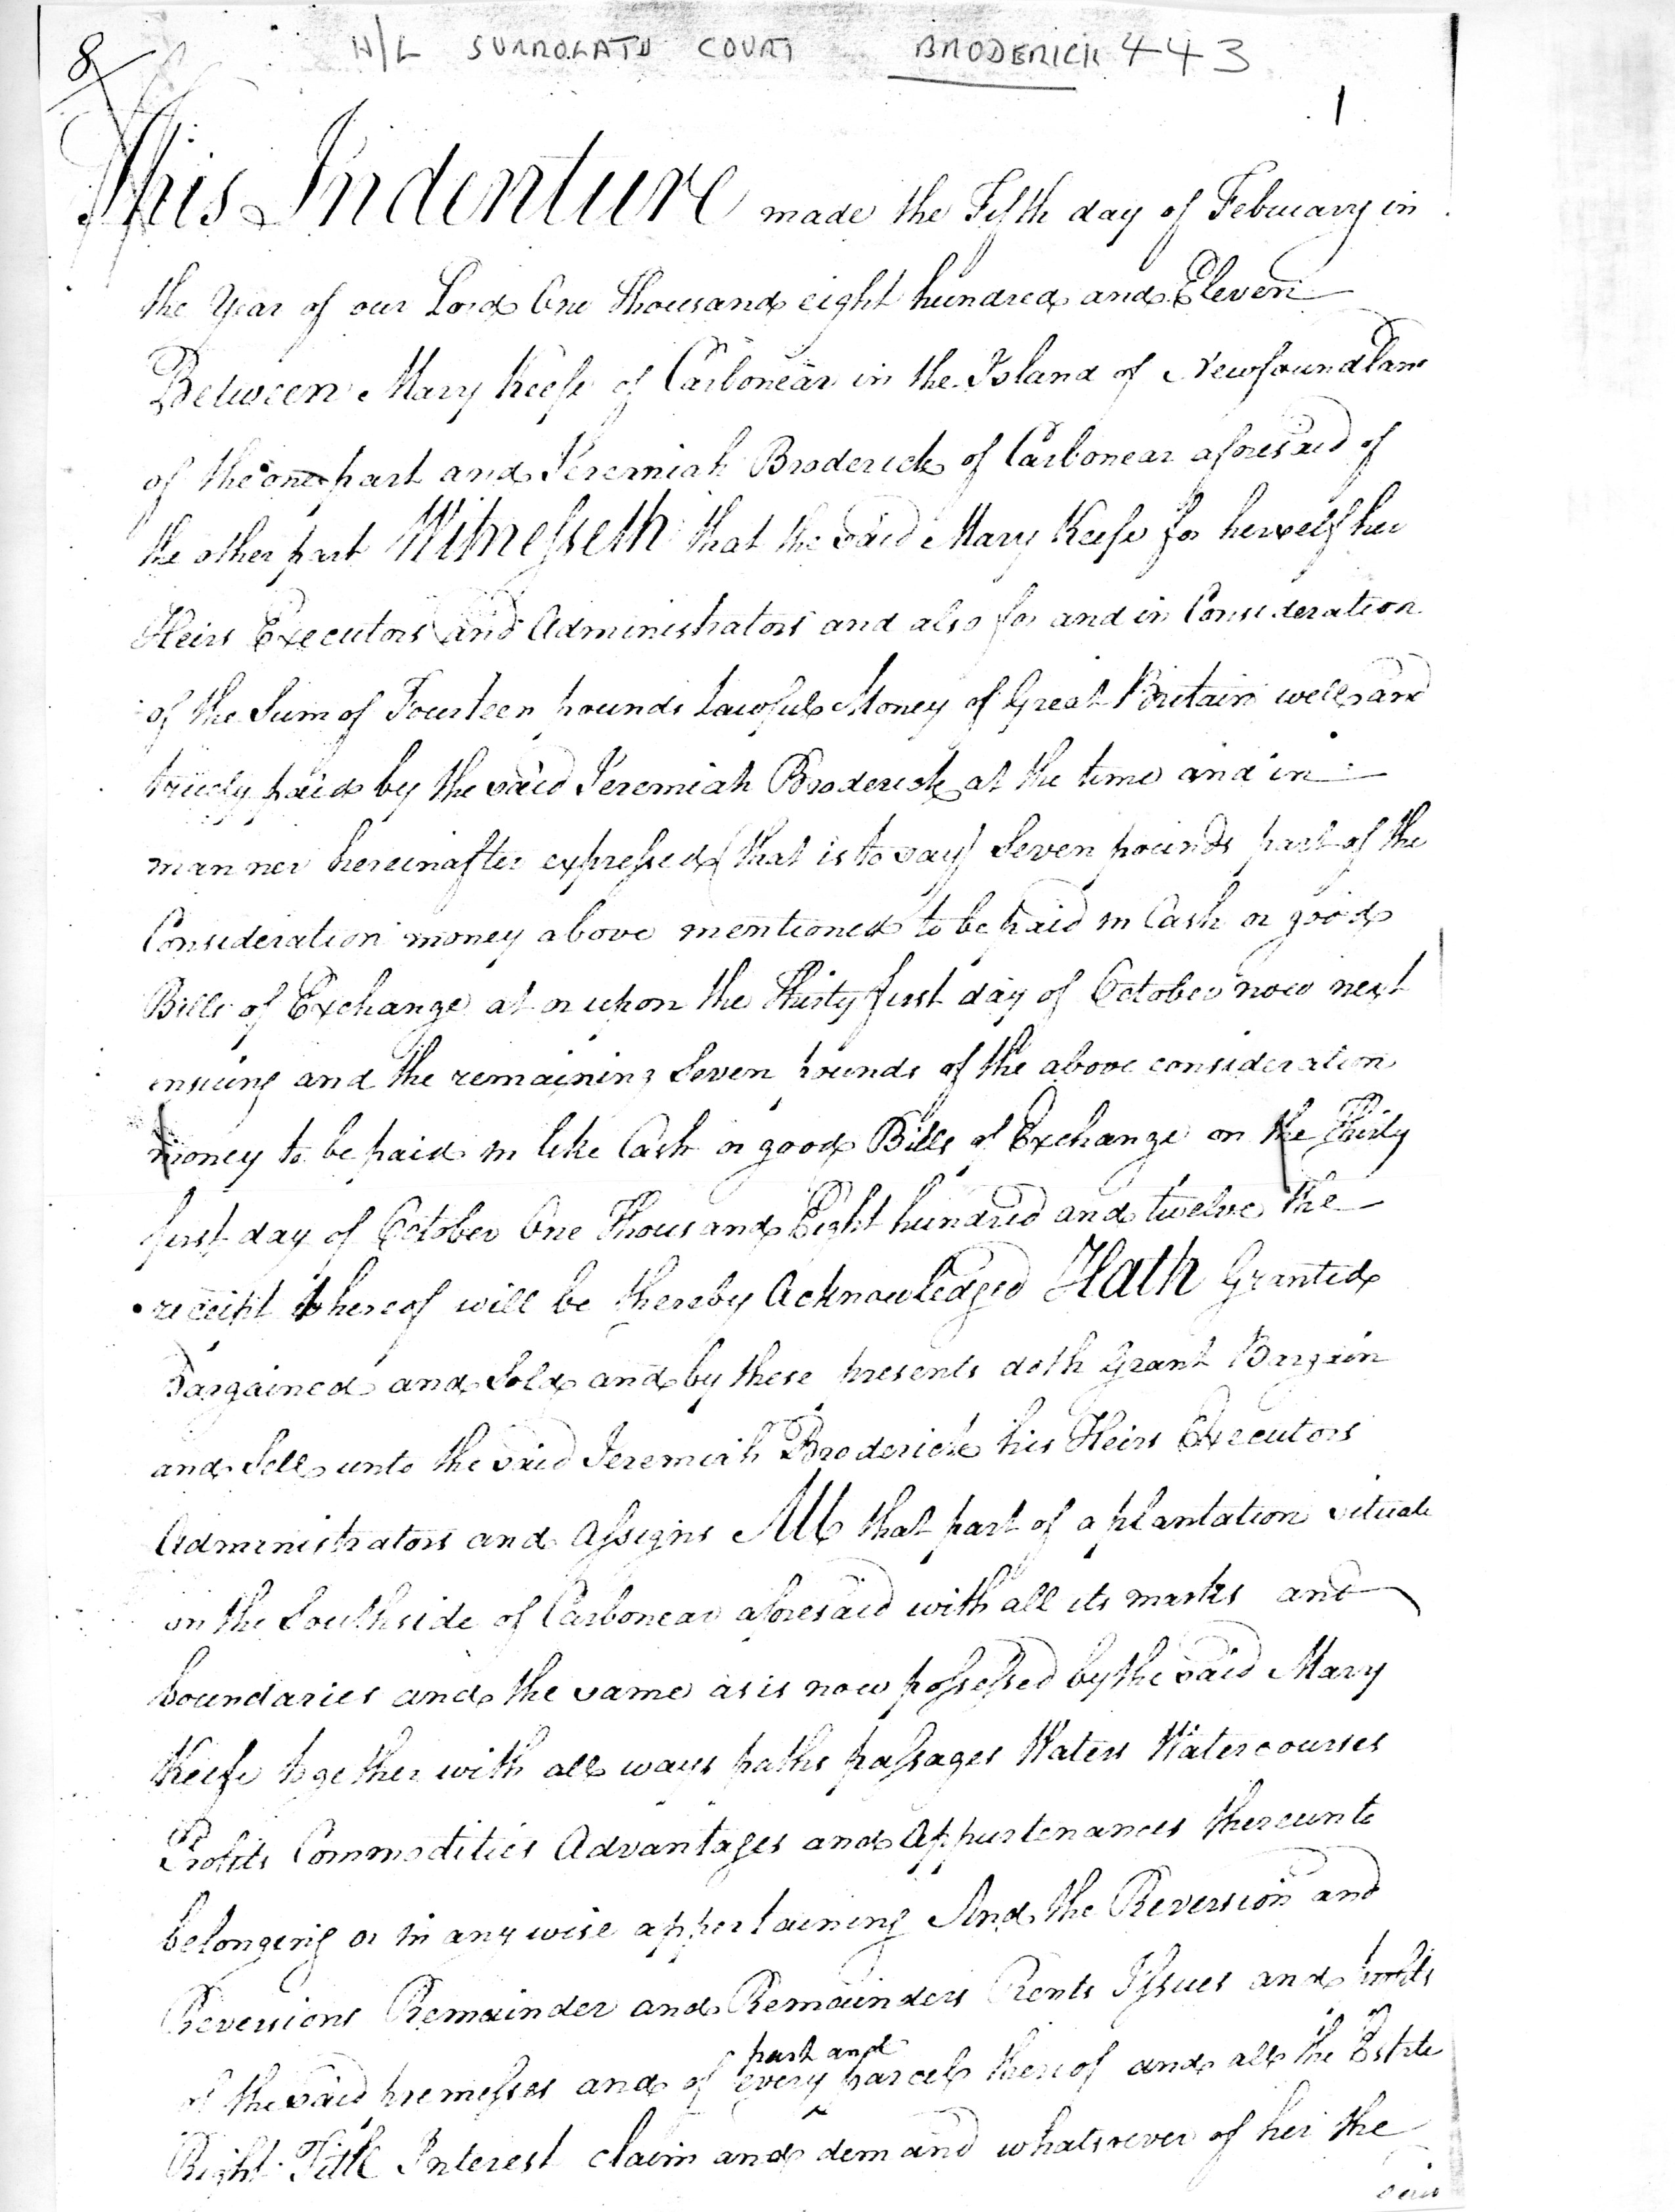 8
N/L SURROGATE COURT BRODERICK 443
1
This Indenture made the Fifth day of February in
the Year of our Lord One thousand eight hundred and Eleven
Between Mary Keefe of Carbonear in the Island of Newfoundland
of the one part and Jeremiah Broderick of Carbonear aforesaid of
the other part Witnesseth that the said Mary Keefe for herself her
Heirs Executors and Administrators and also for and in Consideration
of the Sum of Fourteen pounds Lawful Money of Great Britain well and
truely paid by the said Jeremiah Broderick at the time and in
manner hereinafter expressed (that is to say) Seven pounds part of the
Consideration money above mentioned to be paid in Cash or good
Bills of Exchange at or upon the Thirty first day of October now next
ensuing and the remaining Seven pounds of the above consideration
money to be paid in like Cash or good Bills of Exchange on the Thirty
first day of October One Thousand Eight hundred and twelve the
receipt whereof will be thereby Acknowledged Hath Granted
Bargained and Sold and by these presents doth Grant Bargain
and Sell unto the said Jeremiah Broderick his Heirs Executors
Administrators and Assigns All that part of a plantation situate
on the Southside of Carbonear aforesaid with all its marks and
boundaries and the same as is now possessed by the said Mary
Keefe together with all ways paths passages Waters Watercourses
Profits Commodities Advantages and Appurtenances thereunto
belonging or in anywise appertaining And the Reversion and
Reversions Remainder and Remainders Rents Issues and profits
part and
of the said premesses and of every parcel thereof and all the Estate
Right Title Interest claim and demand whatsoever of her the
said